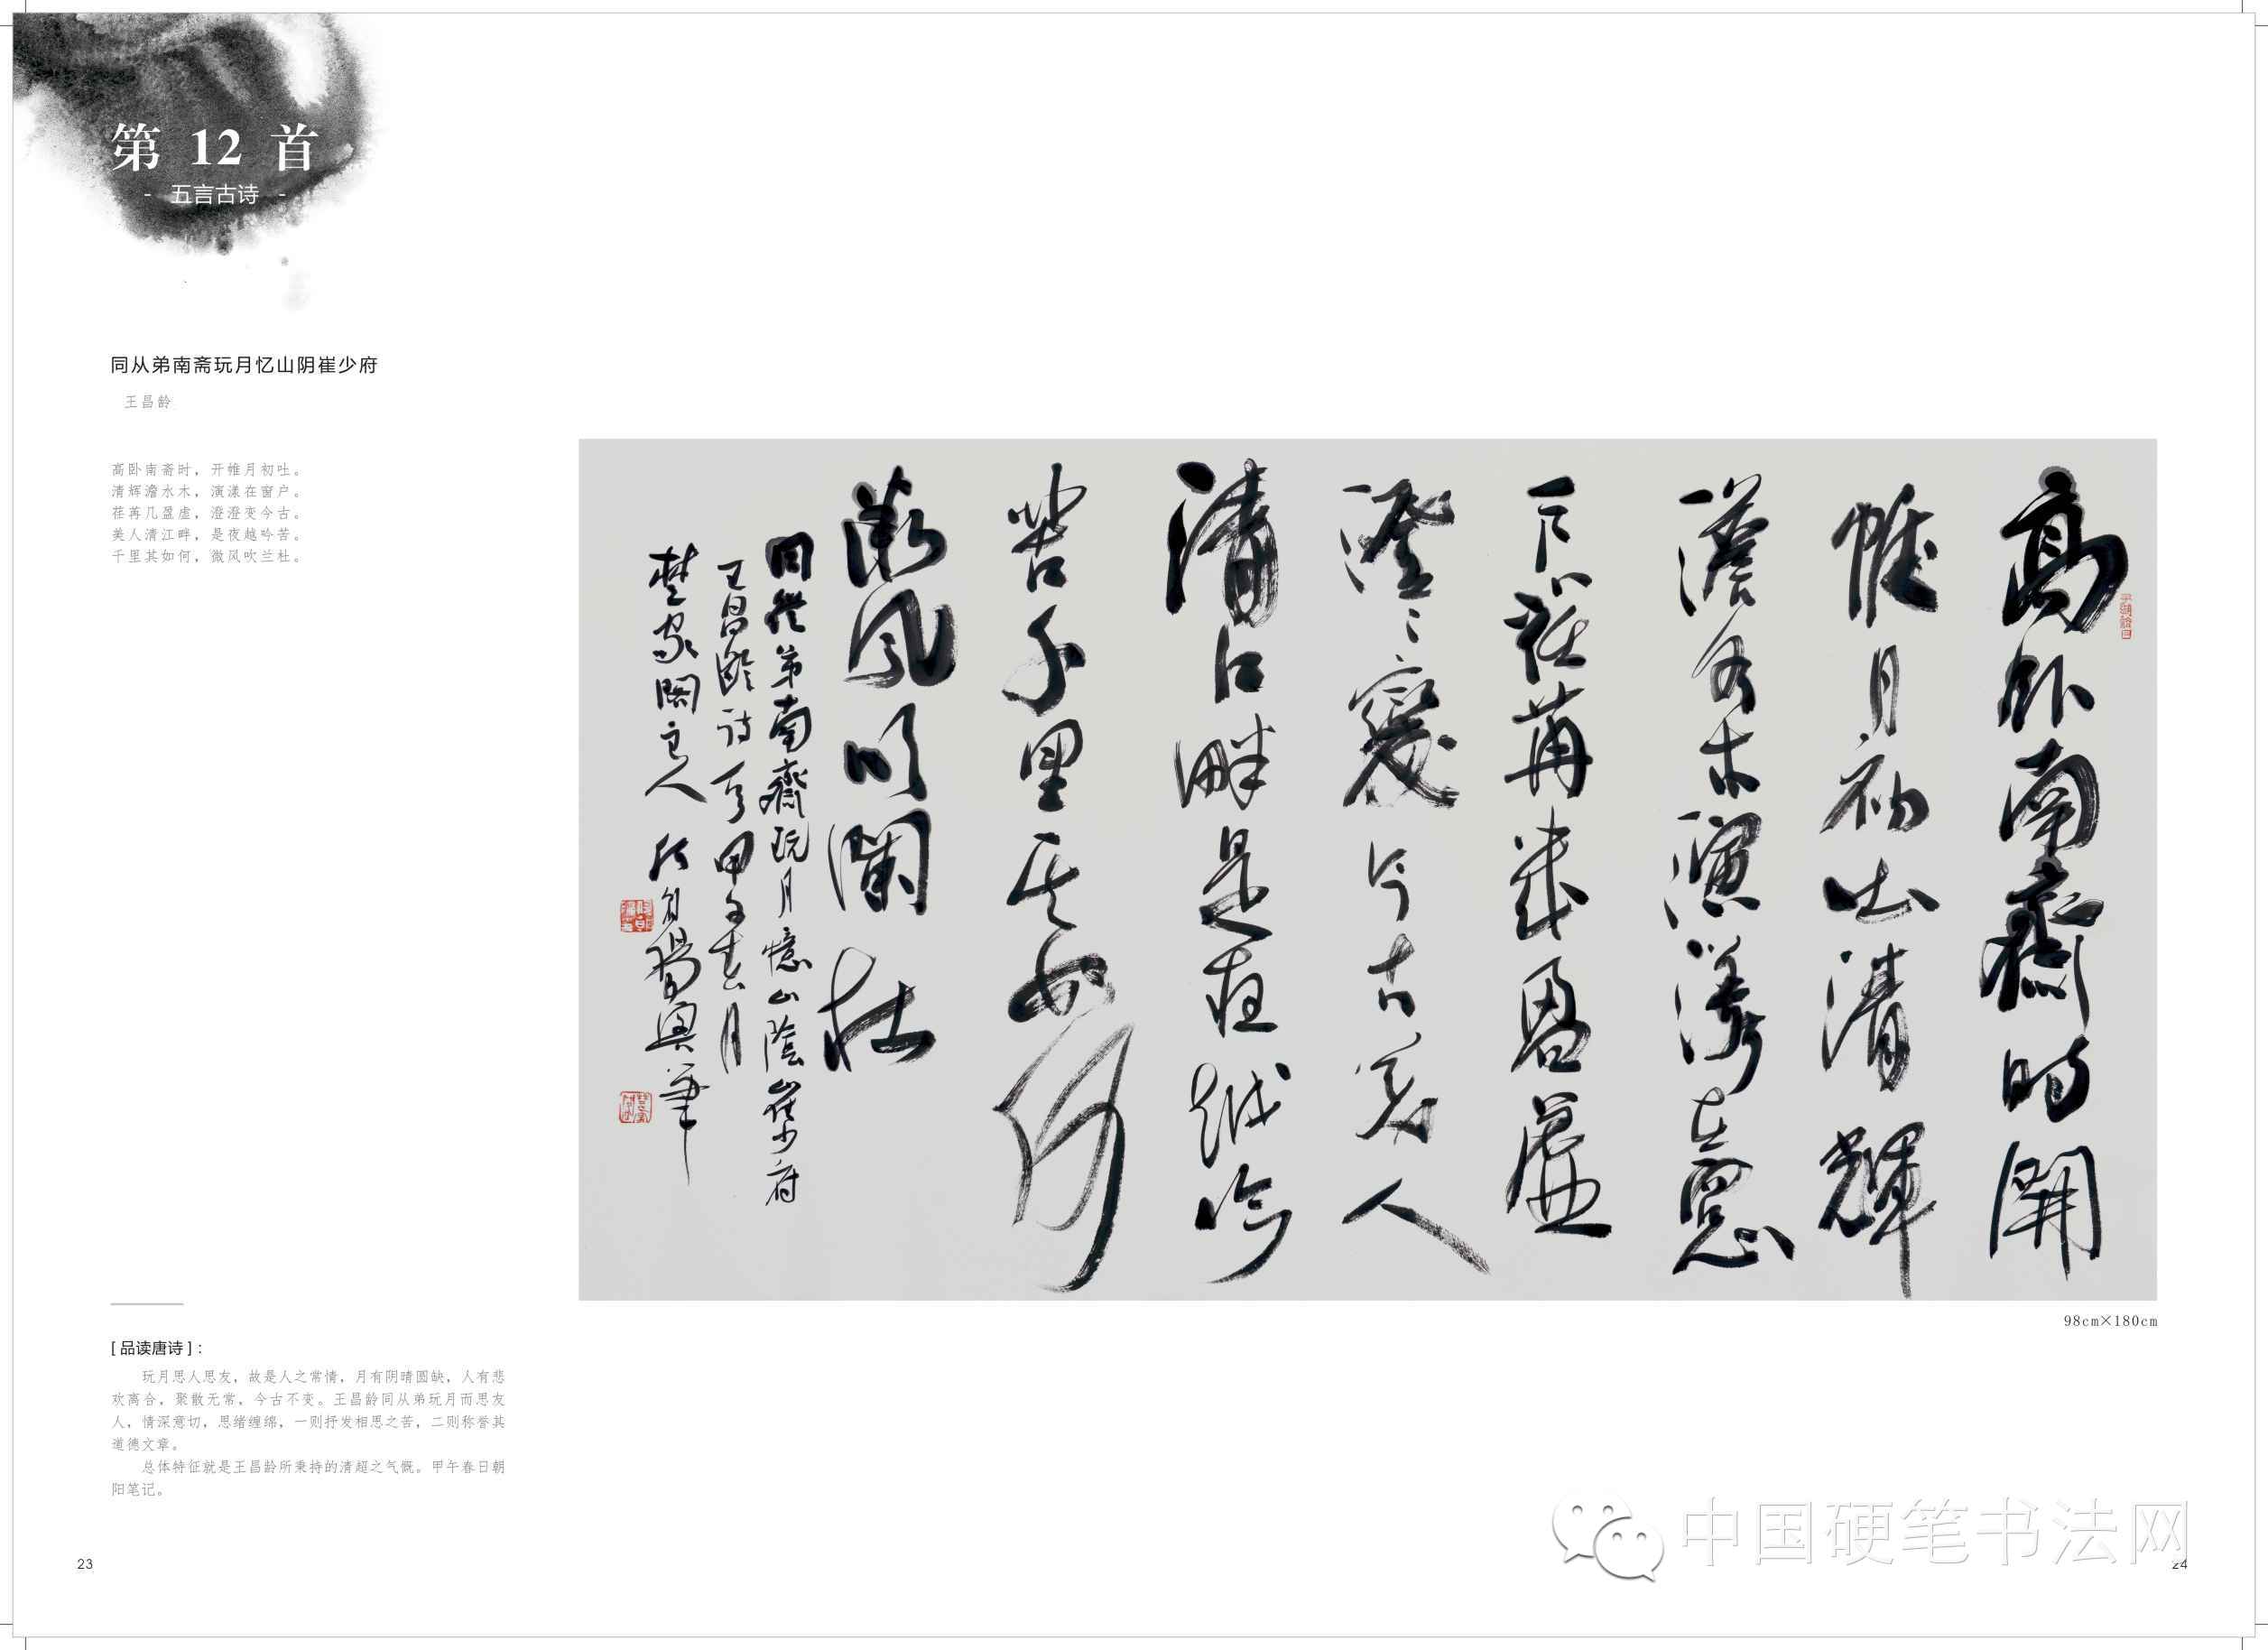 第 12 首
- 五言古诗 -
同从弟南斋玩月忆山阴崔少府
王昌龄
高卧南斋时，开帷月初吐。
清辉澹水木，演漾在窗户。
荏苒几盈虚，澄澄变今古。
美人清江畔，是夜越吟苦。
千里其如何，微风吹兰杜。
高卧南齋時開
帷月初吐清輝
澹水木演漾在窗
户荏苒幾盈虚
澄〻變今古美人
清江畔是夜越吟
苦千里其如何
微風吹蘭杜
同從弟南齋玩月憶山陰崔少府
王昌齡詩一首甲午春月
楚家閣主人
98cm×180cm
[ 品读唐诗 ]：
玩月思人思友，故是人之常情，月有阴晴圆缺，人有悲
欢离合，聚散无常，今古不变。王昌龄同从弟玩月而思友
人，情深意切，思绪缠绵，一则抒发相思之苦，二则称誉其
道德文章。
总体特征就是王昌龄所秉持的清超之气慨。甲午春日朝
阳笔记。
中国硬笔书法网
23
24